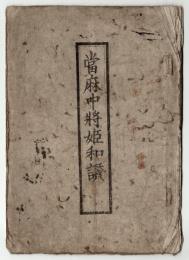 當麻中將姫和讃